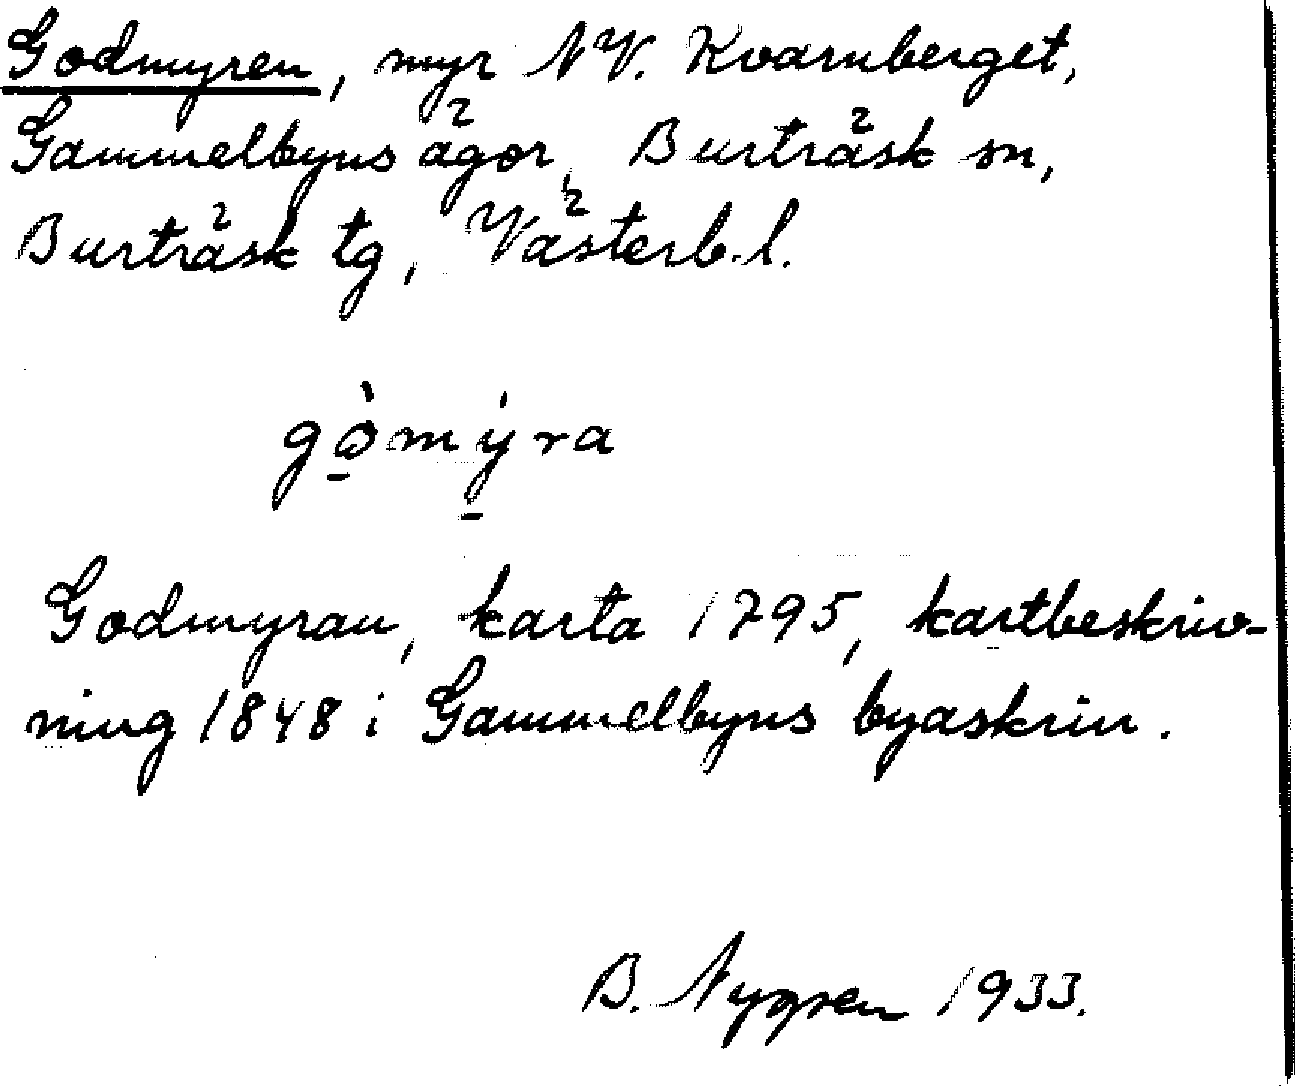 Godmyren, myr NV. Kvarnberget,
Gammelbyns ägor, Burträsk sn,
Burträsk tg, Västerb. l.
gò̱mý̱ra
Godmyran, karta 1795, kartbeskriv-
ning 1848 i Gammelbyns byaskrin.
B. Nygren 1933.